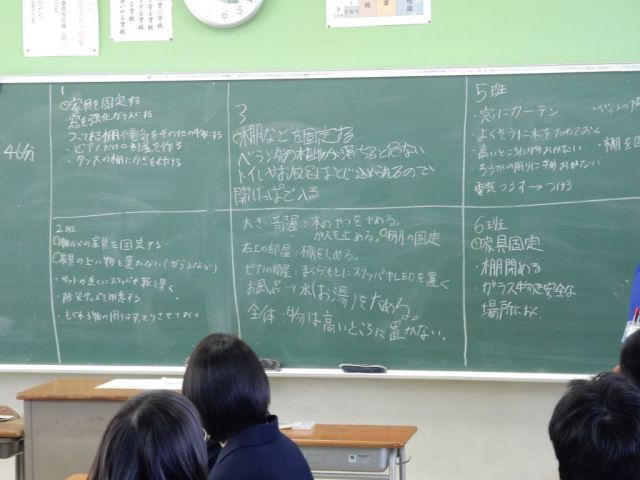 46分
1
家具を固定する
窓を強化ガラスにする
ピアノだけの部屋を作る
タンスの棚にかぎを付ける
2班
棚などの家具を固定する
家具の上に物を置かない(ガラスなど)
ベッドの近くにスリッパを置く
防災グッズを用意する
3
棚などを固定する
ベランダの植物が落ちると危ない
トイレやお風呂はとじ込められるので
開けっぱで入る
大きい部屋:木のやつをやめる。
ガスを止める。棚の固定
右上の部屋:棚をしめる。
ピアノの部屋:まくらもとにスリッパやLEDを置く
お風呂→水(お湯)をためる。
全体・物は高いところに置かない。
5班
・窓にカーテン
・よくそうに水をためておく
・高いところに物おかない
・ろうかの周りに物おかない
電気つるす→つける
6班
家具固定
・棚閉める
・ガラス物を安全な
場所におく